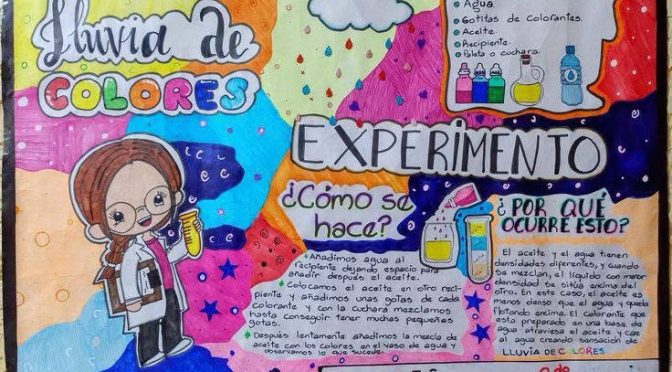 Lluvia de
COLORES
Agua
Gotitas de colorantes.
Aceite
Recipiente
Paleta o cuchara.
EXPERIMENTO
¿Cómo se
hace?
Añadimos agua al
recipiente dejando espacio para
añadir después el aceite.
Colocamos el aceite en otro reci-
piente y añadimos unas gotas de cada
colorante y con la cuchara mezclamos
hasta conseguir tener muchas pequeñas
gotas.
Después lentamente añadimos la mezcla de
aceite con los colores en el vaso de agua y
observamos lo que sucede.
¿POR QUÉ
OCURRE ESTO?
El aceite y el agua tienen
densidades diferentes, y cuando
se mezclan, el líquido con menor
densidad se sitúa encima del
otro. En este caso, el aceite es
menos denso que el agua y queda
flotando encima. El colorante que
esta preparado en una base de
agua atraviesa el aceite y cae
al agua creando sensación de
LLUVIA DE COLORES